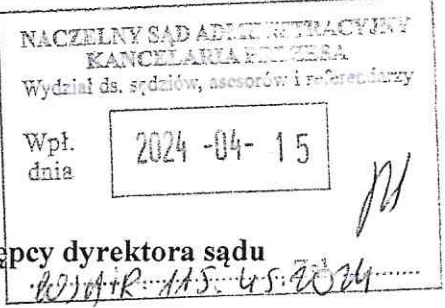 NACZELNY SĄD ADMINISTRACYJNY
KANCELARIA PREZESA
Wydział ds. sędziów, asesorów i referendarzy
Wpł.
dnia
2024 -04- 15
epcy dyrektora sądu